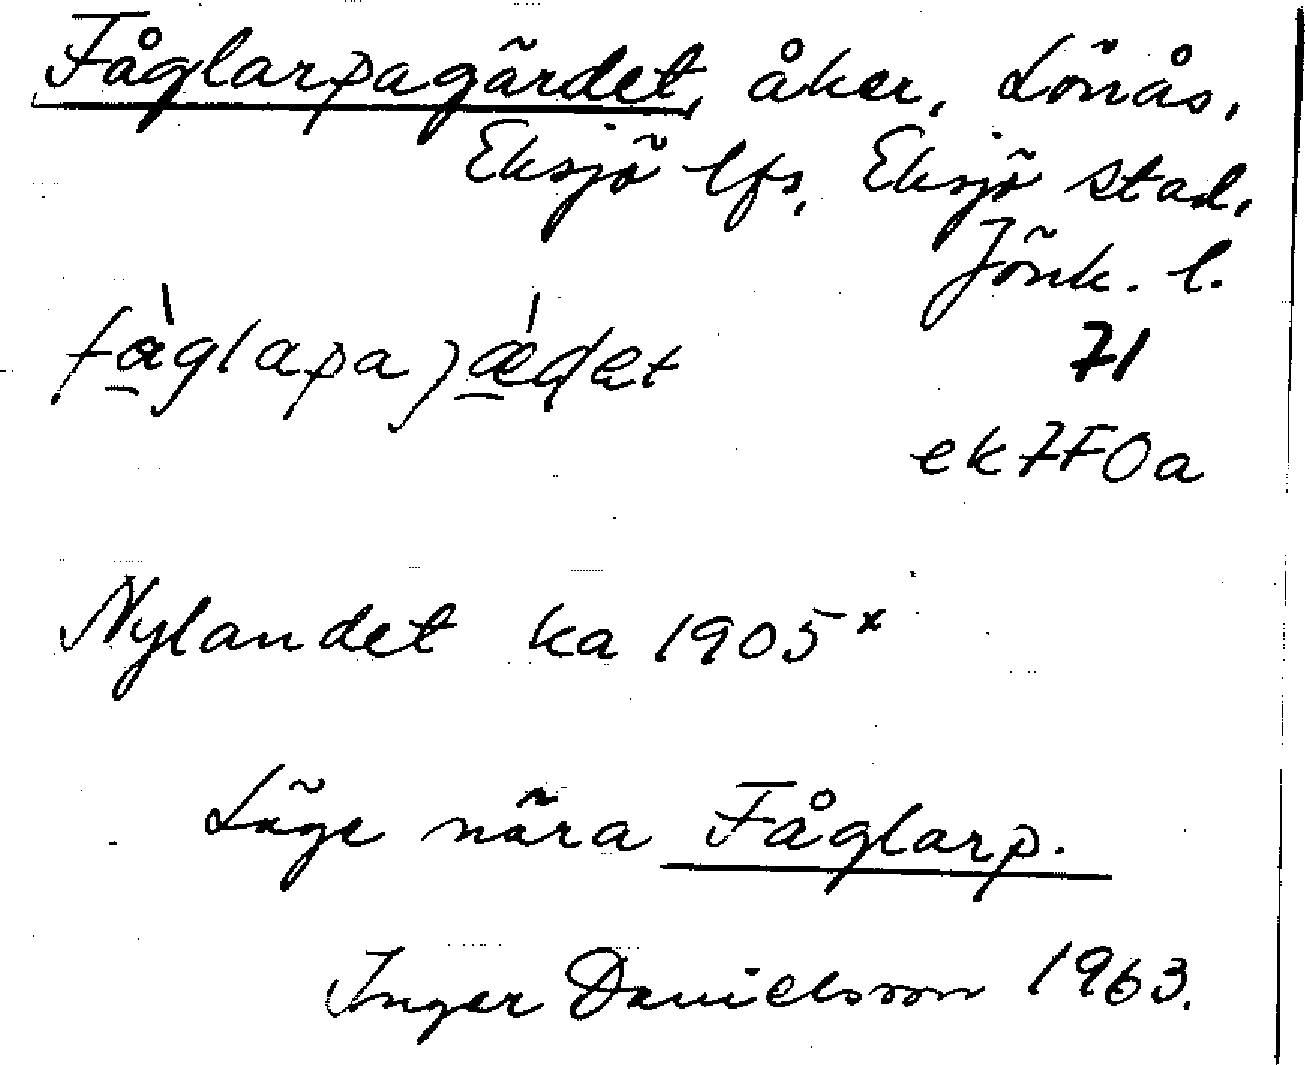 Fåglarpagärdet, åker, Lönås,
Eksjö lfs, Eksjö stad,
Jönk. l.
71
ek7F0a
Nylandet ka 1905ˣ
Läge nära Fåglarp.
Inger Danielsson 1963.